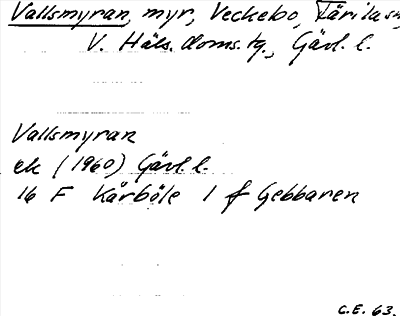 Vallsmyran, myr, Veckebo, Färila sn,
V. Häls. doms.tg., Gävl. l.
Vallsmyran
ek (1960) Gävl. l.
16 F Kårböle 1 f Gebbaren
C.E. 63.